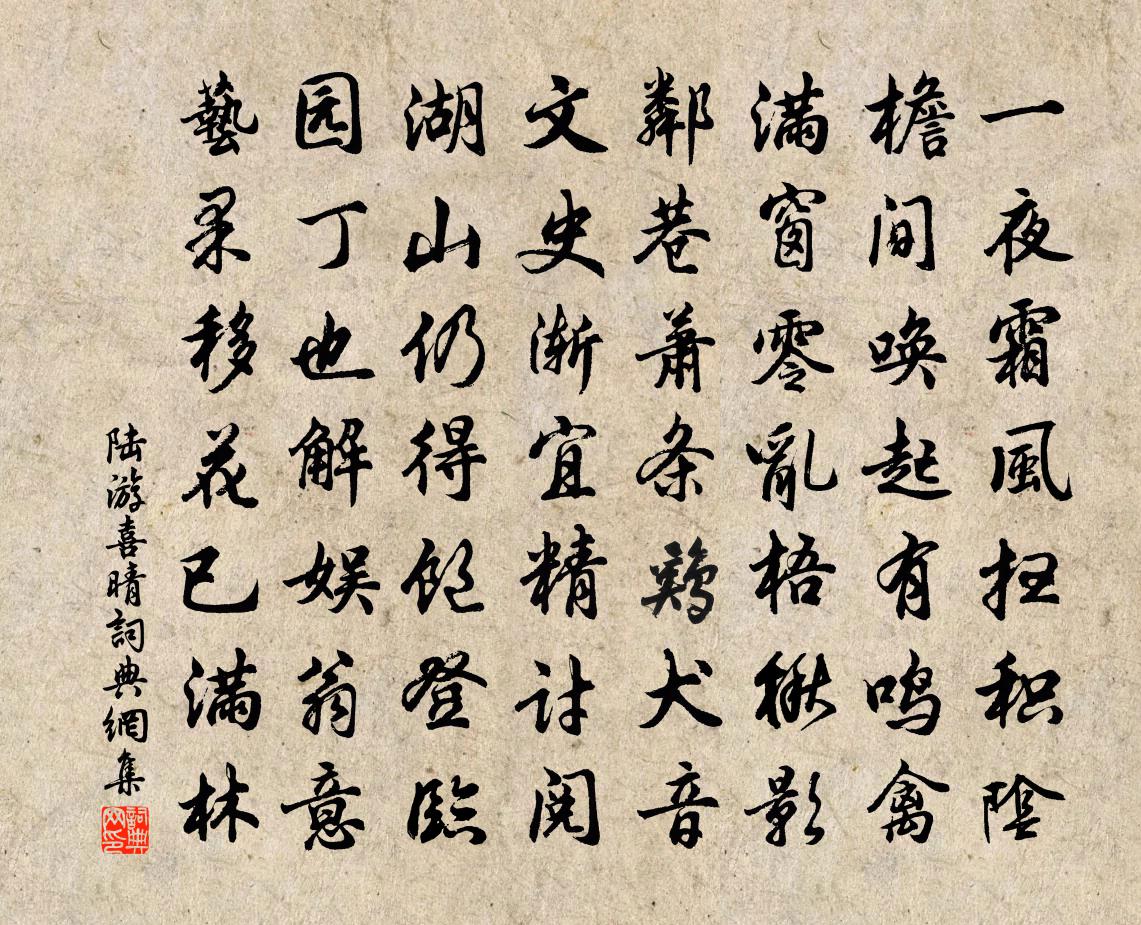 一夜霜風扫积陰
檐间唤起有鸣禽
满窗零亂梧楸影
鄰巷蕭条鷄犬音
文史渐宜精讨阅
湖山仍得饱登臨
园丁也解娱翁意
藝果移花已满林
陆游喜晴詞典網集
詞典网印